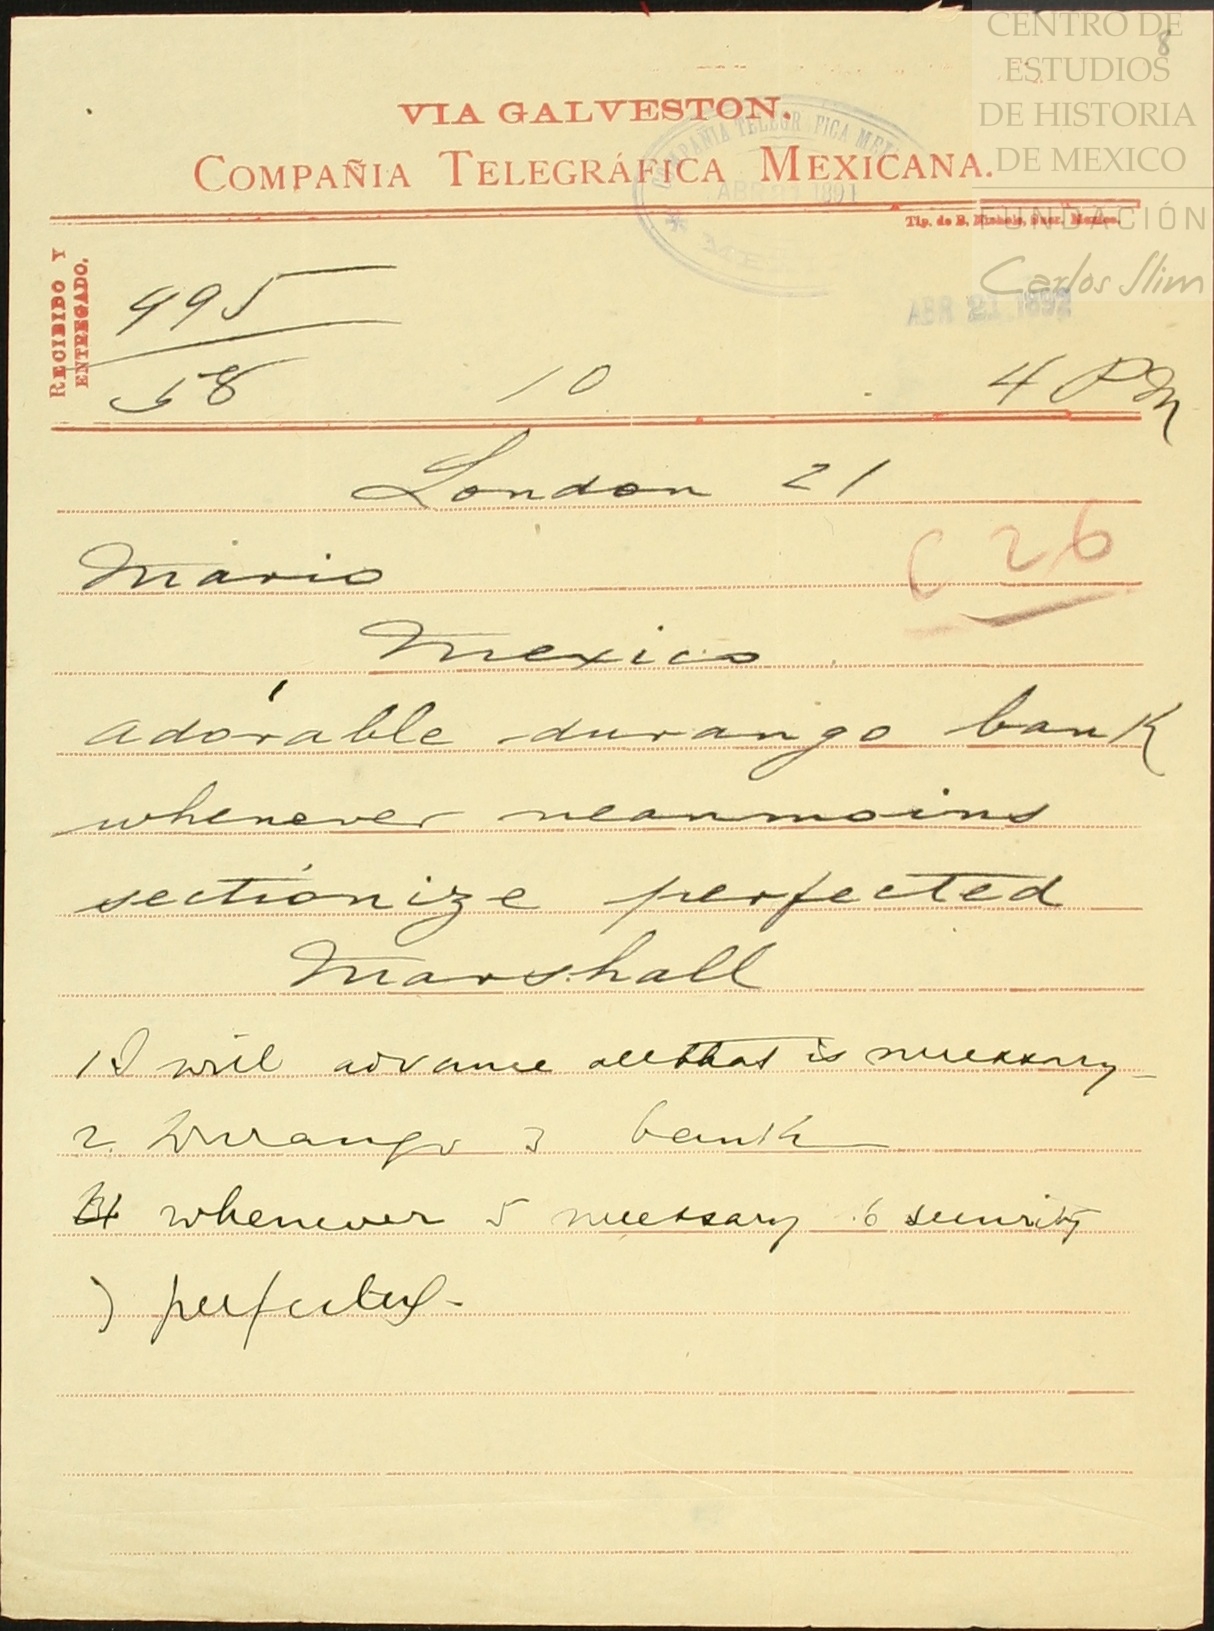 8
CENTRO DE
ESTUDIOS
DE HISTORIA
DE MEXICO
FUNDACIÓN
Carlos Slim
VIA GALVESTON.
COMPAÑIA TELEGRÁFICA MEXICANA.
COMPAÑIA TELEGRAFICA MEX
ABR 21 1891
Tip. de B. Nichols, Suer. Mexico.
RECIBIDO Y
ENTREGADO.
495
ABR 21 1892
58 10 4 PM
London 21
Mario
C 26
Mexico
adorable durango bank
whenever neanmoins
sectionize perfected
Marshall
1 I will advance all that is necessary
2. Durango 3 bank
4 whenever 5 necessary 6 security
7 perfected-